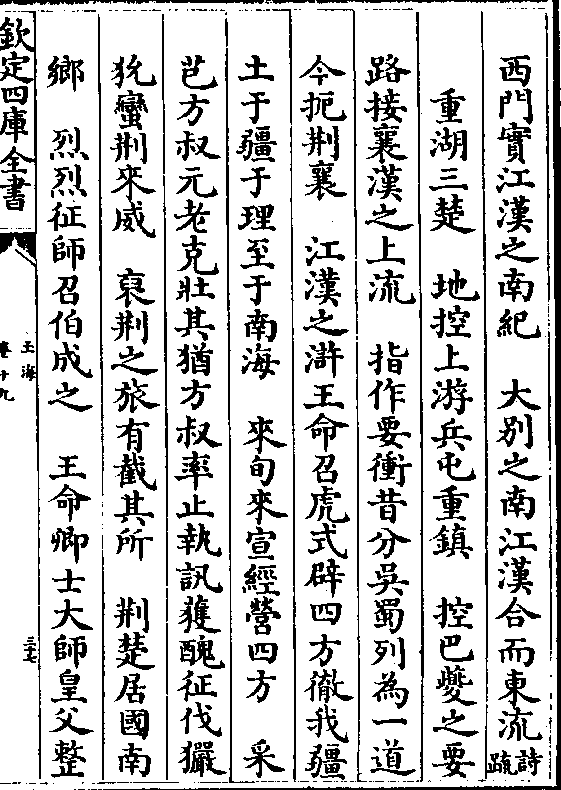 西門實江漢之南紀　大别之南江漢合而東流詩疏
重湖三楚　地控上游兵屯重鎮　控巴夔之要
路接襄漢之上流　指作要衝昔分吳蜀列為一道
今扼荆襄　江漢之滸王命召虎式辟四方徹我疆
土于疆于理至于南海　來旬來宣經營四方　采
芑方叔元老克壯其猶方叔率止執訊獲醜征伐玁
狁蠻荆來威　裒荆之旅有截其所　荆楚居國南
鄉　烈烈征師召伯成之　王命卿士大師皇父整
欽定四庫全書
玉海
卷十九
三十七